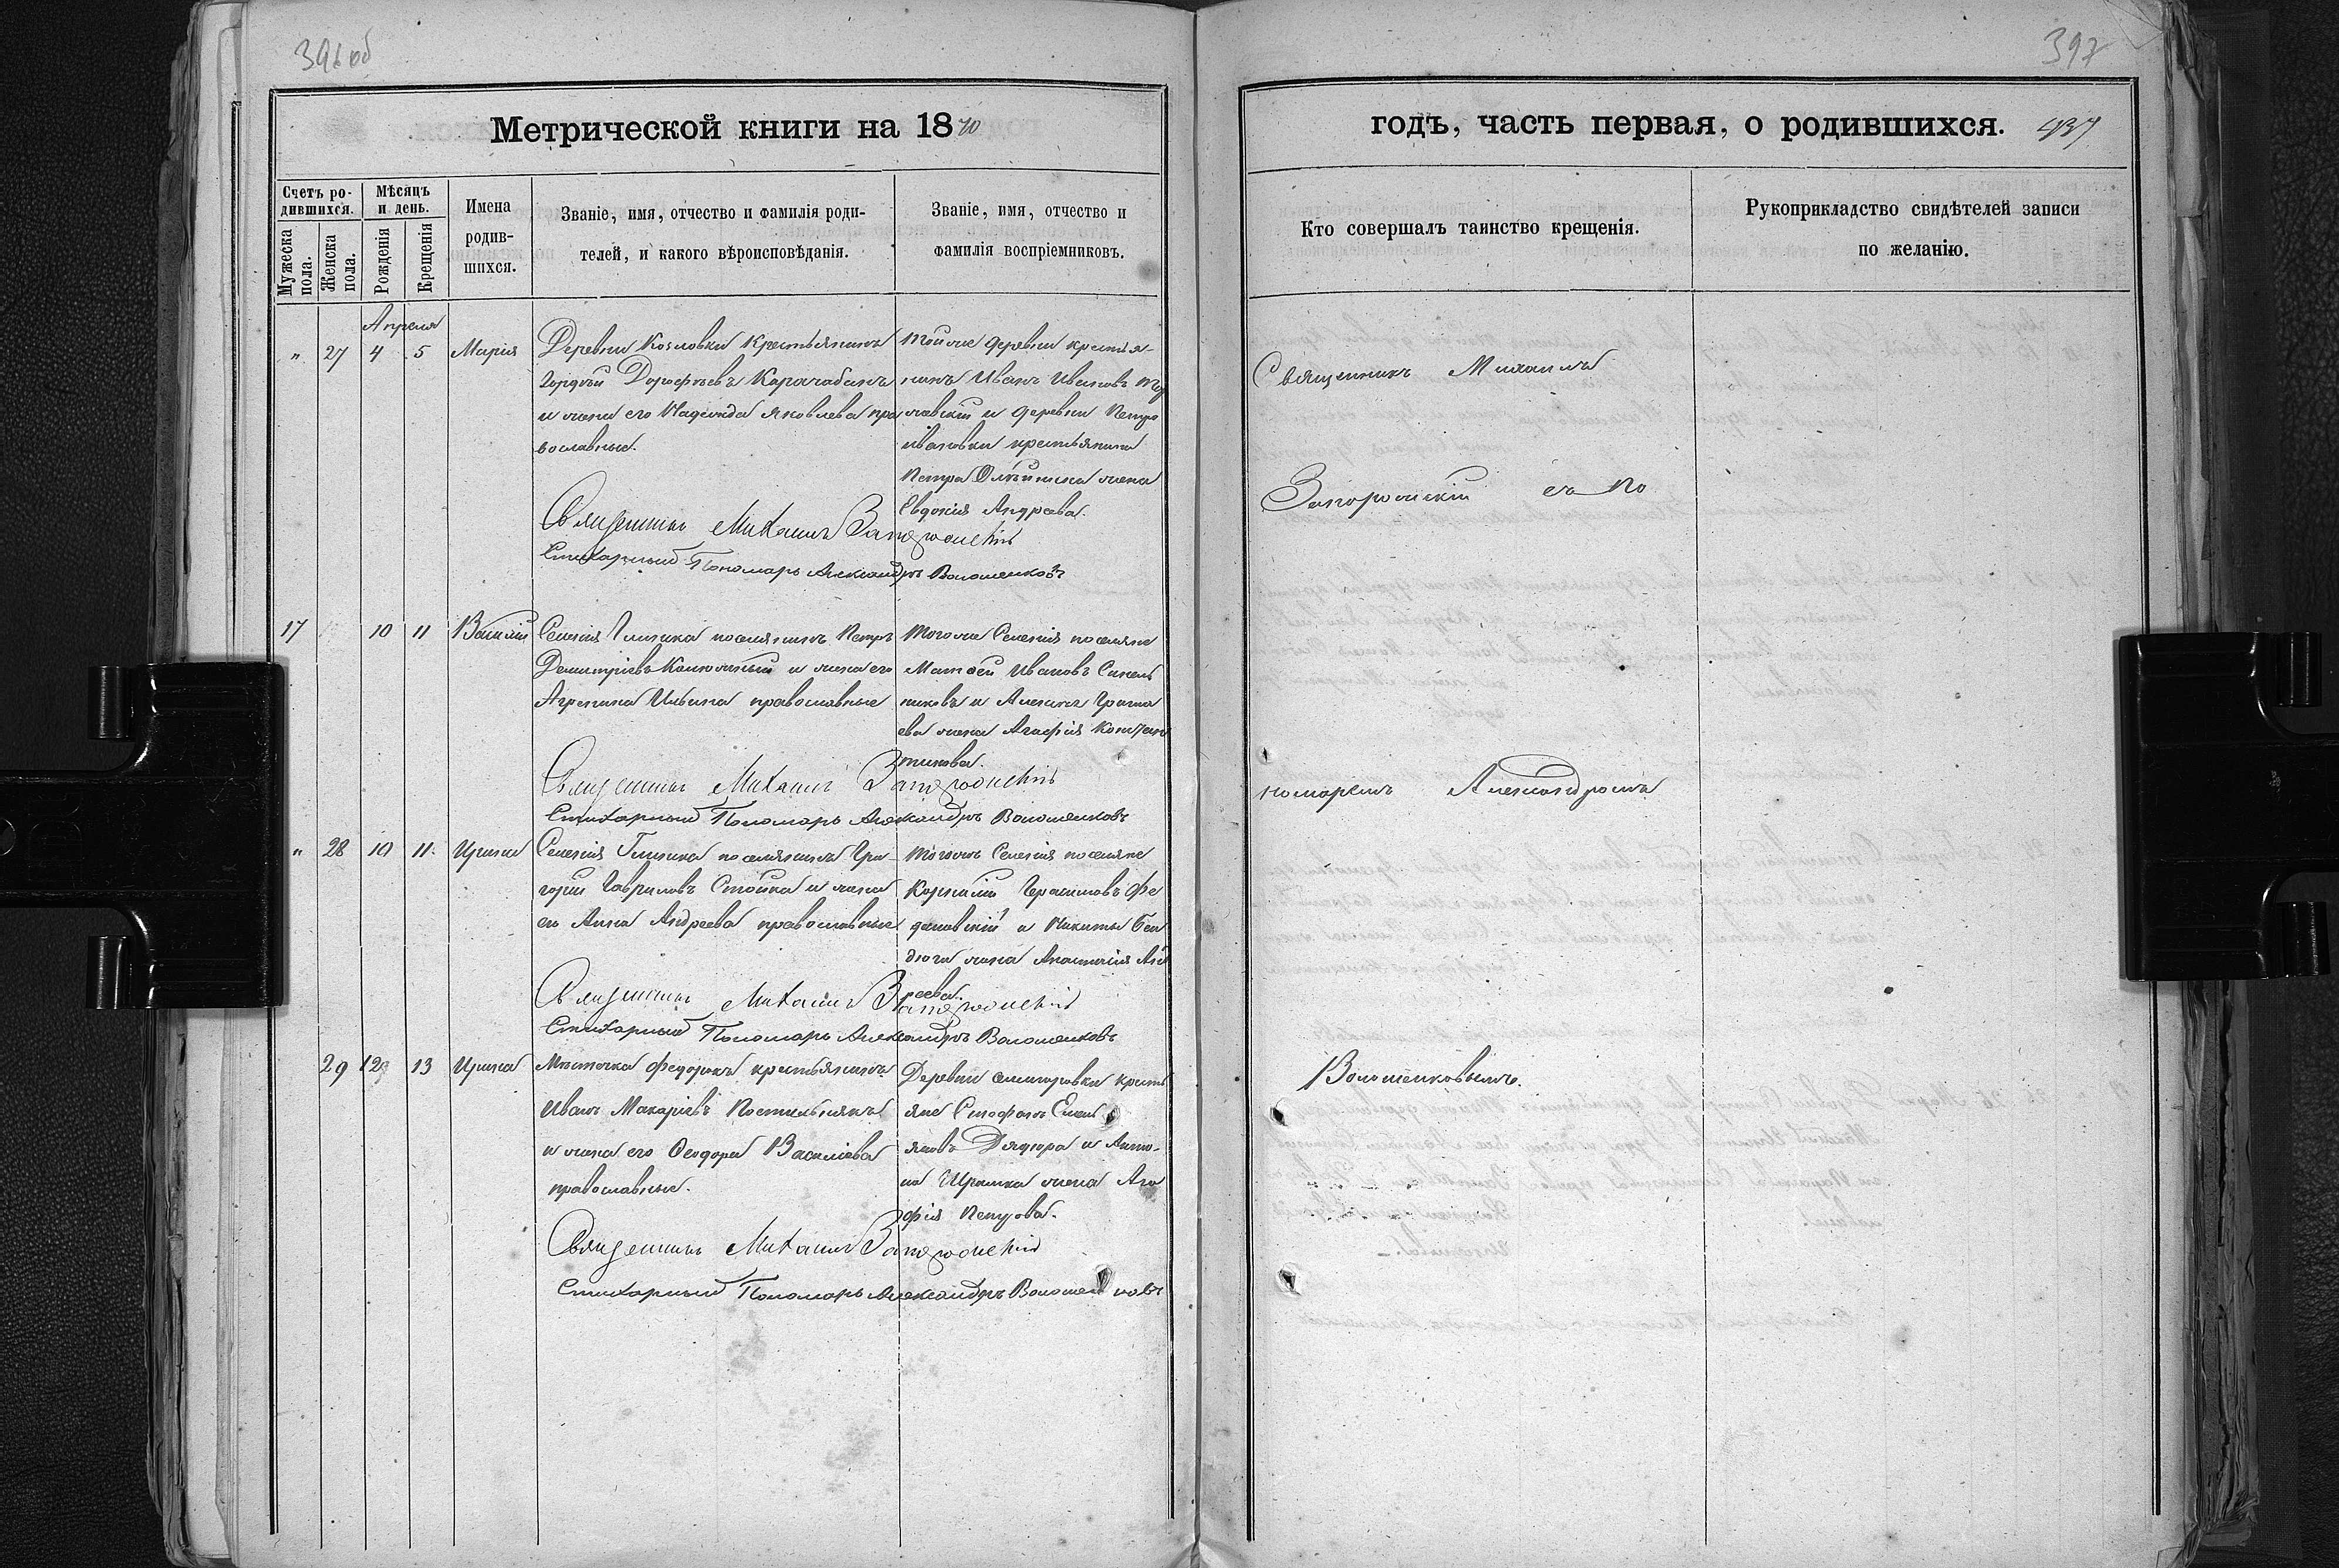 396 об
Метрической книги на 1870
Счетъ родившихся.
Мужеска пола.
Женска пола.
Мѣсяцъ и день.
Рожденія
Крещенія
Имена родившихся.
Званіе, имя, отчество и фамилія роди-
телей, и какого вѣроисповѣданія.
Званіе, имя, отчество и
фамилія воспріемниковъ.
Апреля
" 27 4 5 Марія
Деревни Козловки крестьянинъ
Гордѣй Дорофѣевъ Карачабанъ
и жена его Надежда Яковлева пра
вославные.
Той же деревни крестья-
нинъ Иванъ Ивановъ
и деревни Петро
ивановки крестьянина
Петра Олейника жена
Евдокія Андреева
Священникъ Михаилъ Запорожскій
Стихарный Пономарь Александръ Волошенковъ
17 10 11 Василій
Селенія Глиника поселянинъ Петръ
Димитріевъ и жена его
Агрепина Ильина православные
Того же Селенія поселяне
Матѳей Ивановъ Синель
никовъ и Алексея
ева жена Агафія Констан
тинова.
Священникъ Михаилъ Запорожскій
Стихарный Пономарь Александръ Волошенковъ
" 28 10 11 Ирина
Селенія Глиника поселянинъ Гри-
горій Гавриловъ Стойка и жена
его Анна Андреева православные
Того же Селенія поселяне
Корнилій Герасимовъ Фе
деновскій и Никиты Бен
дюга жена Анастасія Анд
реева.
Священникъ Михаилъ Запорожскій
Стихарный Пономарь Александръ Волошенковъ
29 12 13 Ирина
Мѣстечка Федоровки крестьянинъ
Иванъ Макаріевъ Постильнякъ
и жена его Ѳеодора Василіева
православные.
Деревни крестья
яне Стефанъ Емель
яновъ Дядюра и Анто-
на жена Ага
фія Петрова.
Священникъ Михаилъ Запорожскій
Стихарный Пономарь Александръ Волошенковъ
397
годъ, часть первая, о родившихся. 437
Кто совершалъ таинство крещенія.
Рукоприкладство свидѣтелей записи
по желанію.
Священникъ Михаилъ
Запорожскій съ По
номаремъ Александромъ
Волошенковымъ.